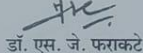 डॉ. एस. जे. फराकटे